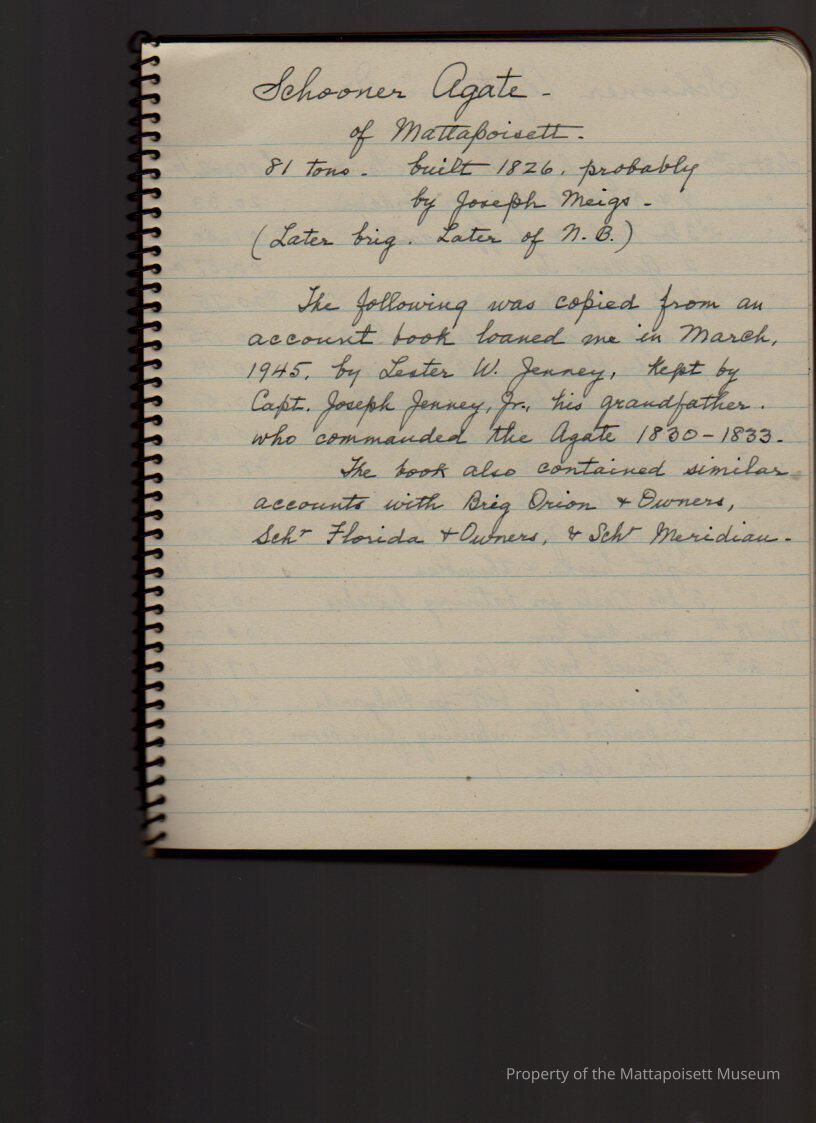 Schooner Agate -
of Mattapoisett -
81 tons - built 1826, probably
by Joseph Meigs -
(Later brig. Later of N. B.)
The following was copied from an
account book loaned me in March,
1945, by Lester W. Jenney, kept by
Capt. Joseph Jenney, Jr., his grandfather.
who commanded the Agate 1830-1833.
The book also contained similar
accounts with Brig Orion & Owners,
Schr Florida & Owners, & Schr Meridian -
Property of the Mattapoisett Museum